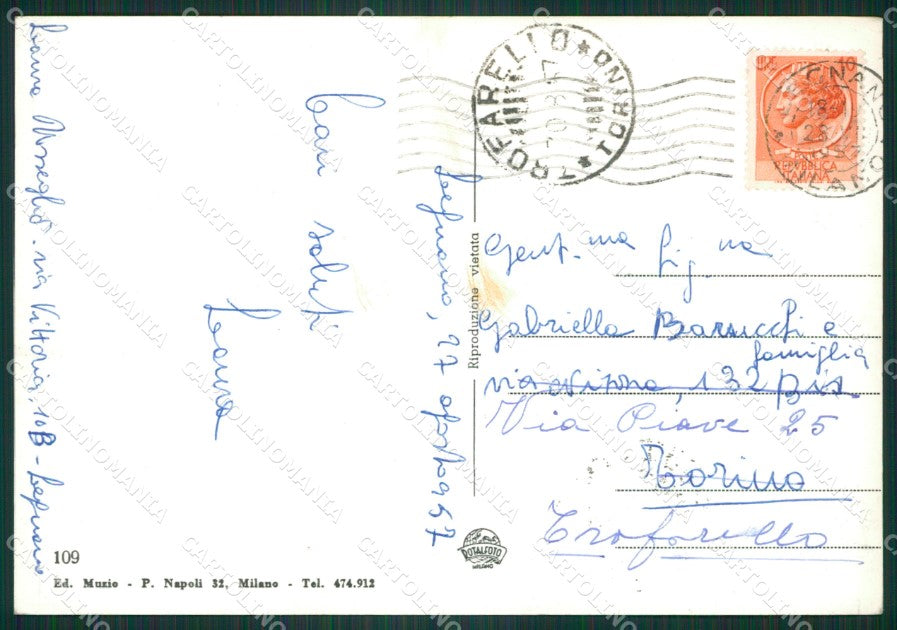 Cari saluti
Laura
Legnano, 27 agosto 957
Laura - via Vittoria, 10B - Legnano
109
Ed. Muzio - P. Napoli 32, Milano - Tel. 474.912
Riproduzione vietata
ROTALFOTO
MILANO
TROFARELLO * TORINO *
10
REPVBBLICA
ITALIANA
MILANO
Gent.ma Sig.na
Gabriella Barucchi e
famiglia
via Nizza, 132 bis.
Via Piave 25
Torino
Trofarello
CARTOLINOMANIA